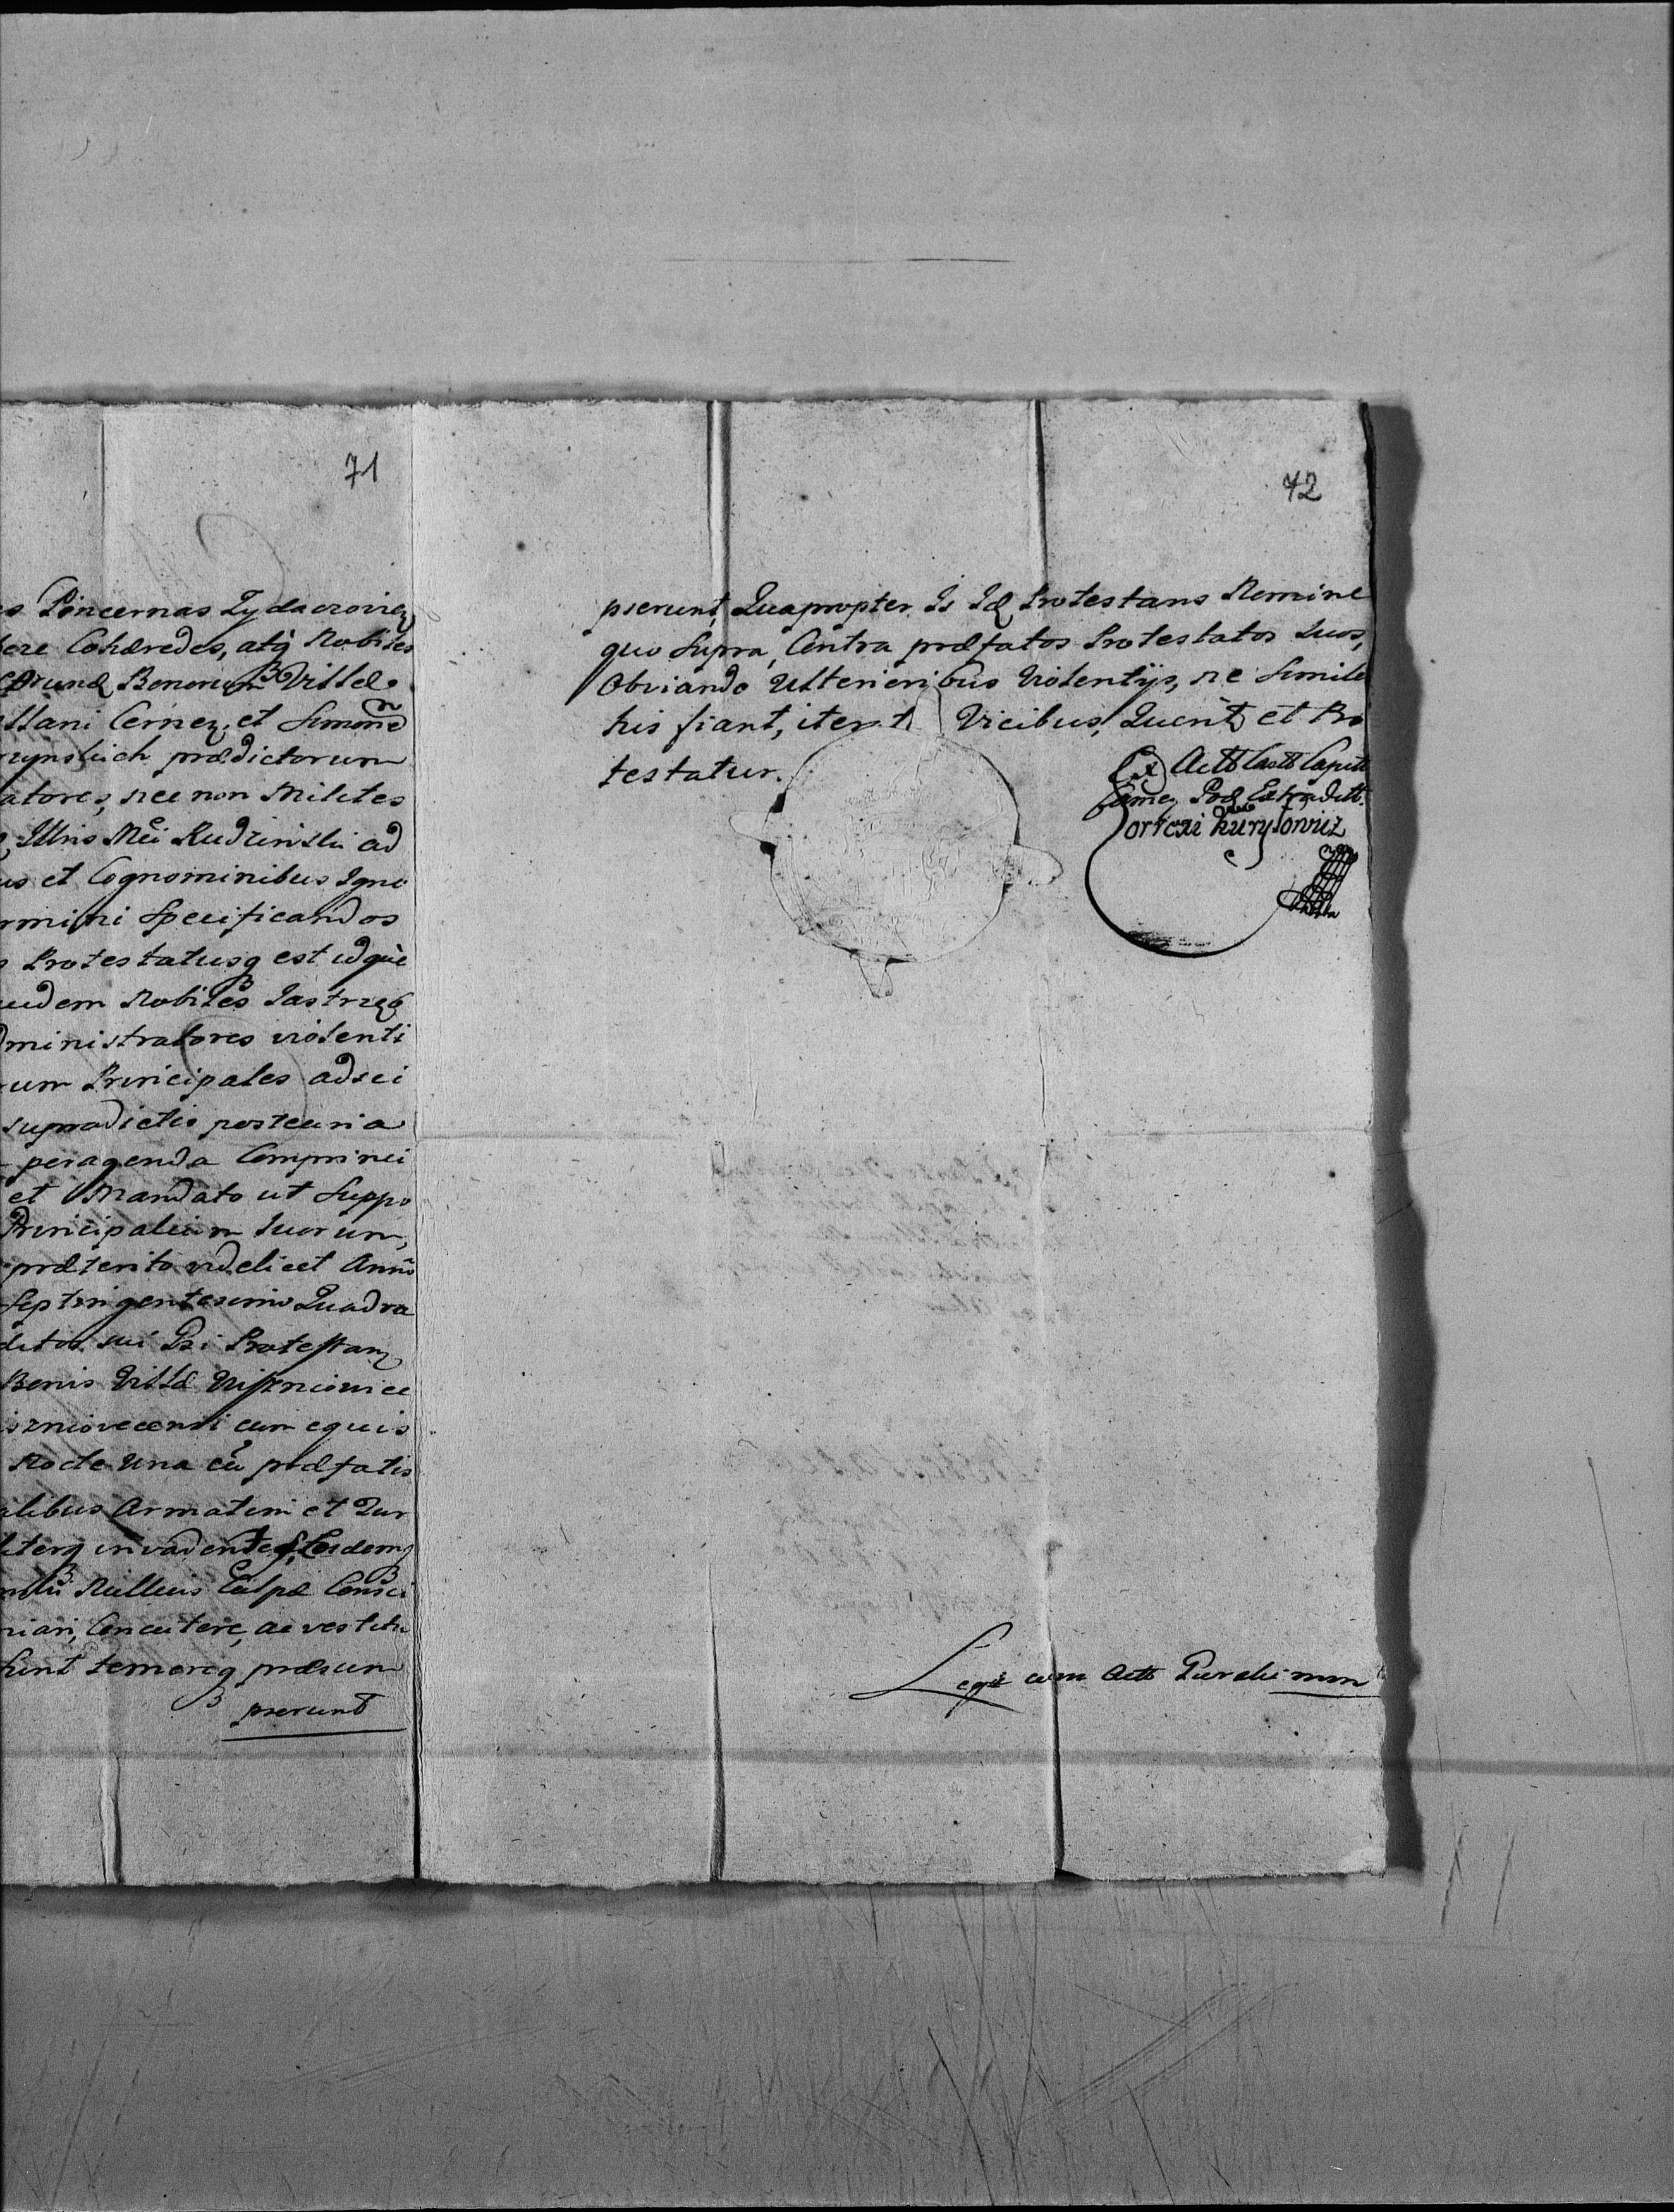 71
s Pincernas Zydaczovien
Cohæredes, atq Nobiles
Bonorum Villæ
Cerner, et Simone
prædictorum
atores, nec non Milites
Illris Mci Rudzinski ad
us et Cognominibus Igno
rmini Specificandos
Protestatusq est idque
uidem Nobiles Jastrzęb
ministratores violenti
um Principales adsci
supradictis
peragenda
et Mandato ut Suppo
Principalium Suorum,
præterito videlicet Anno
Septingentesimo Quadra
sui Pri Protestan
Bonis Villæ Wiszniowice
cum equis
Nocte Una cū præfatis
alibus Armatim et Tur
literq invadentes, Eosdemq
Nullius Culpæ Consci
Concutere, ac vestitu
temereq præsum
pserunt
72
pserunt, Quapropter Is Id Protestans Nomine
quo Supra, Contra præfatos Protestatos Suos,
Obviando Ulterioribus Violentijs, ne Simile
his fiant, iterat Vicibus, Querit et Pro
testatur.
Ex Actis Castr Capit
Camen Pod Extradit
Kurylowicz
Legit cum Actis